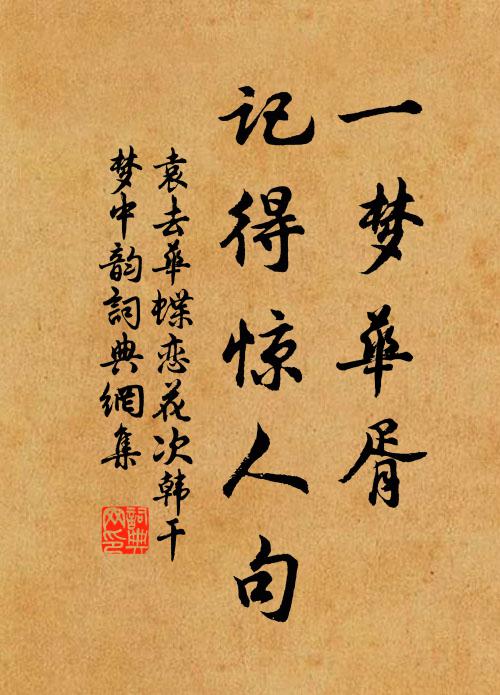 一梦华胥
记得惊人句
袁去华蝶恋花次韩干
梦中韵词典網集
詞典网印